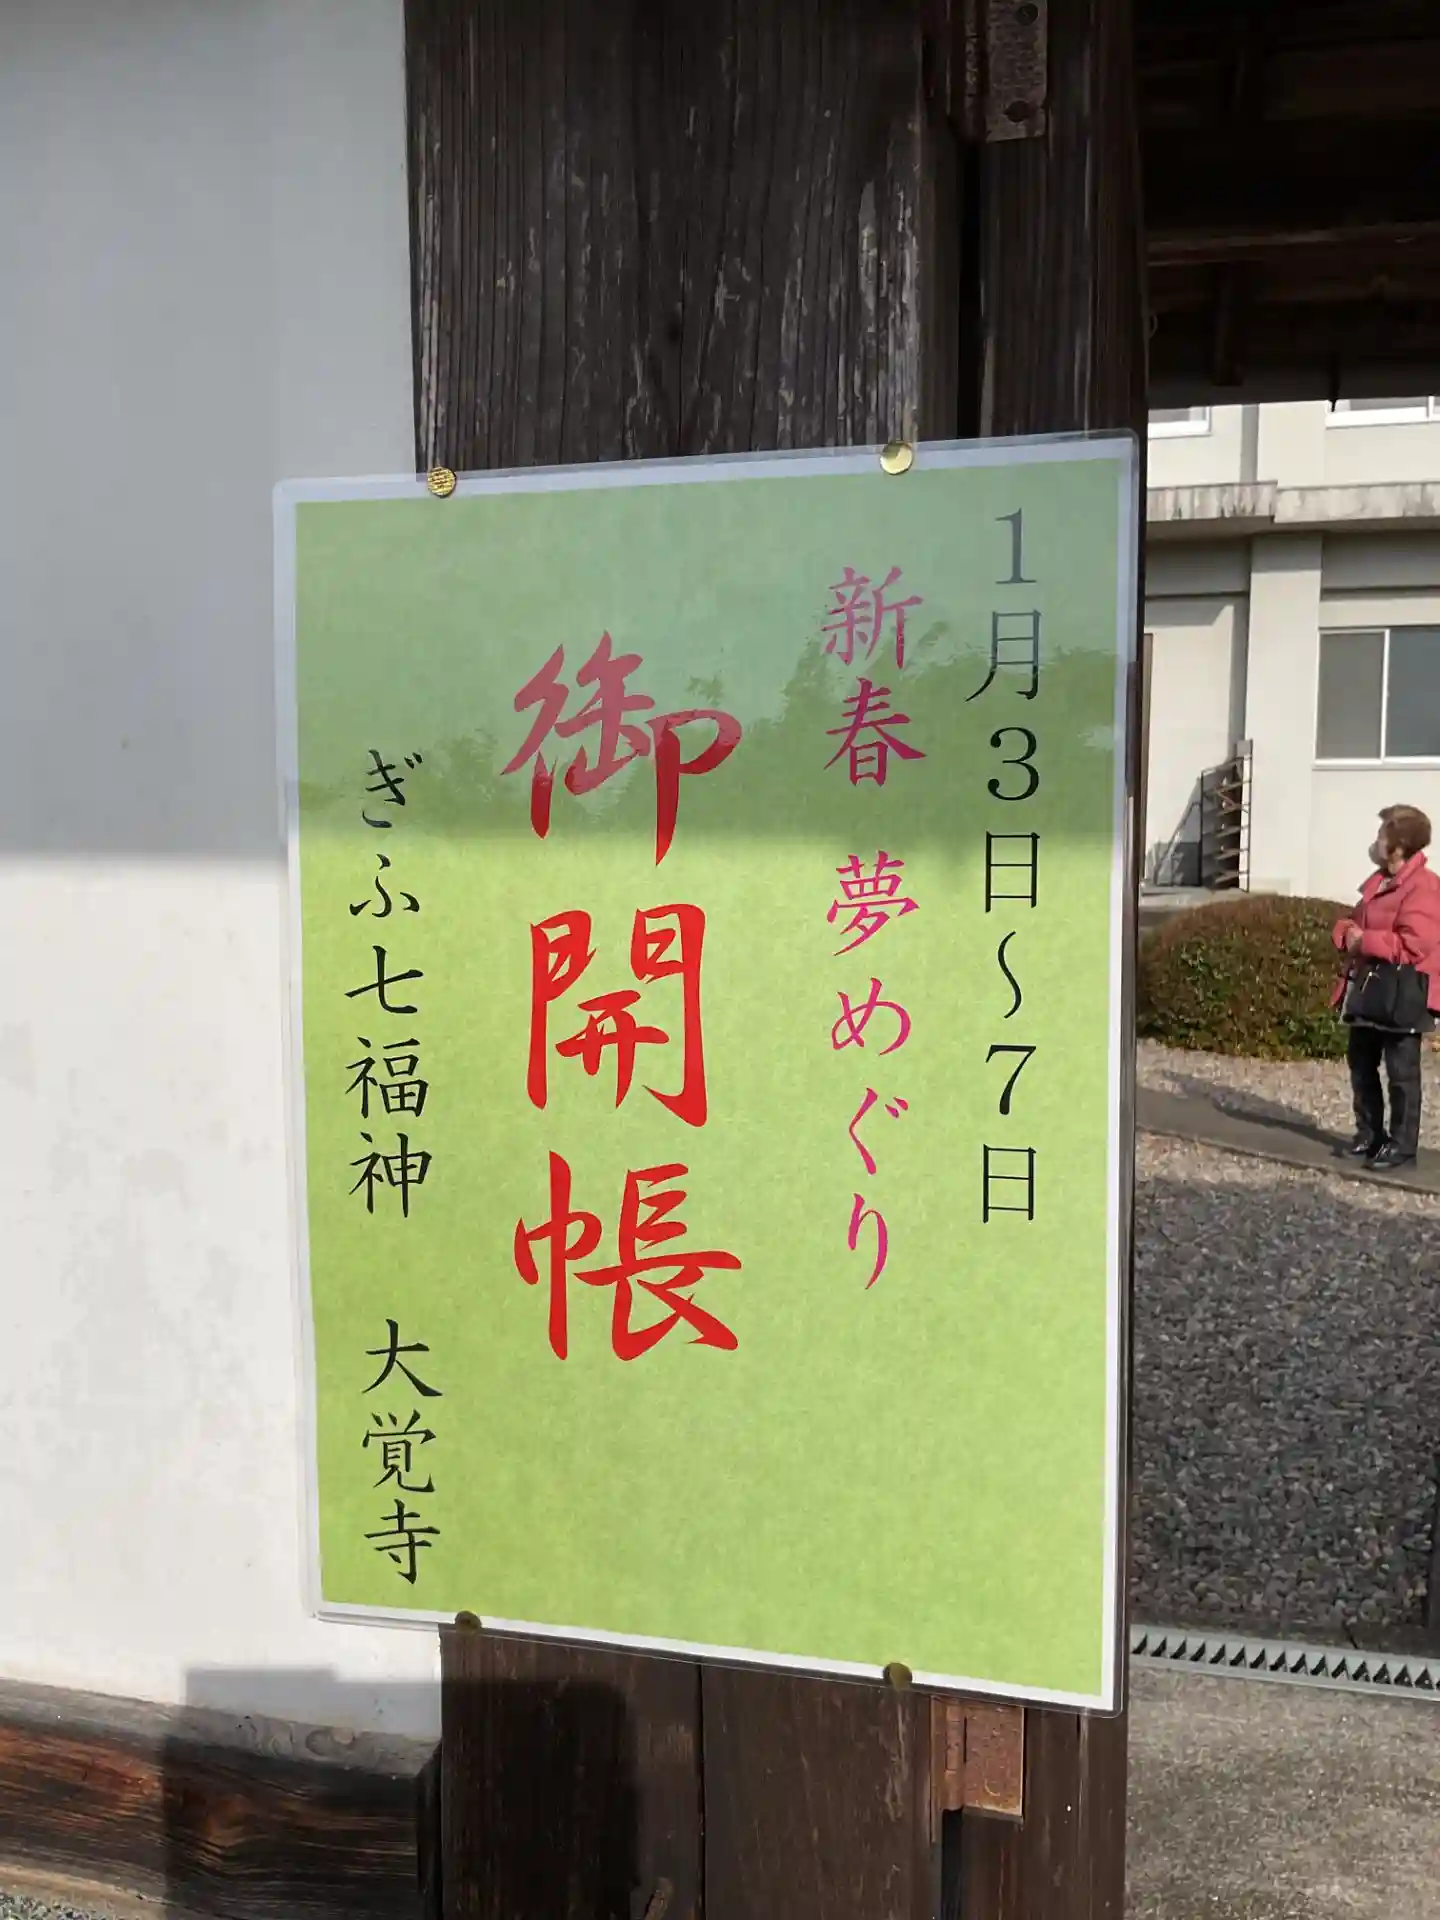 1月3日～7日
新春 夢めぐり
御開帳
ぎふ七福神 大覚寺